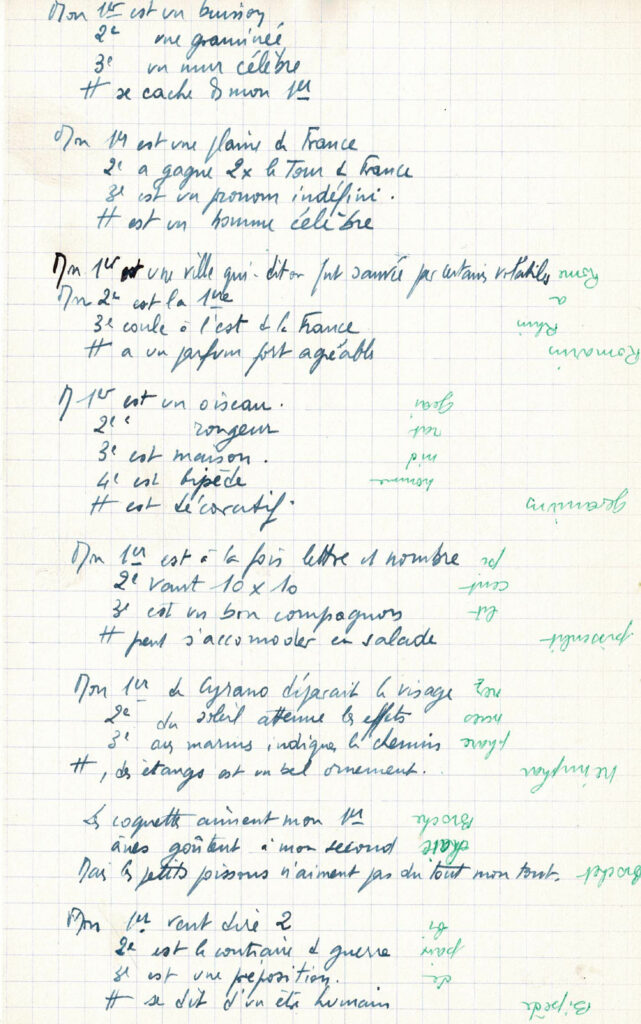 Mon 1er est un buisson
2e une graminée
3e un mur célèbre
# se cache ds mon 1er
Mon 1er est une plaine de France
2e a gagné 2x le Tour de France
3e est un pronom indéfini.
# est un homme célèbre
Mn 1er est une ville qui-dit on fut sauvée par certains volatiles
Rome
Mn 2e est la 1ère
a
3e coule à l'est de la France
Rhin
# a un parfum fort agréable
Romarin
M 1er est un oiseau.
Geai
2e " rongeur
rat
3e est maison.
nid
4e est bipède
homme
# est décoratif.
Mn 1er est à la fois lettre et nombre
pi
2e vaut 10 x 10
cent
3e est un bon compagnon
lit
# peut s'accomoder en salade
pissenlit
Mon 1er de Cyrano déparait le visage
nez
2e du soleil attenue les effets
3e aux marins indique le chemin
phare
#, des étangs est un bel ornement.
Les coquettes aiment mon 1er
Broche
ânes goûtent à mon second
Mais les petits poissons n'aiment pas du tout mon tout.
Brochet
Mon 1er veut dire 2
bi
2e est le contraire de guerre
paix
3e est une préposition.
de
# se dit d'un être humain
Bipède